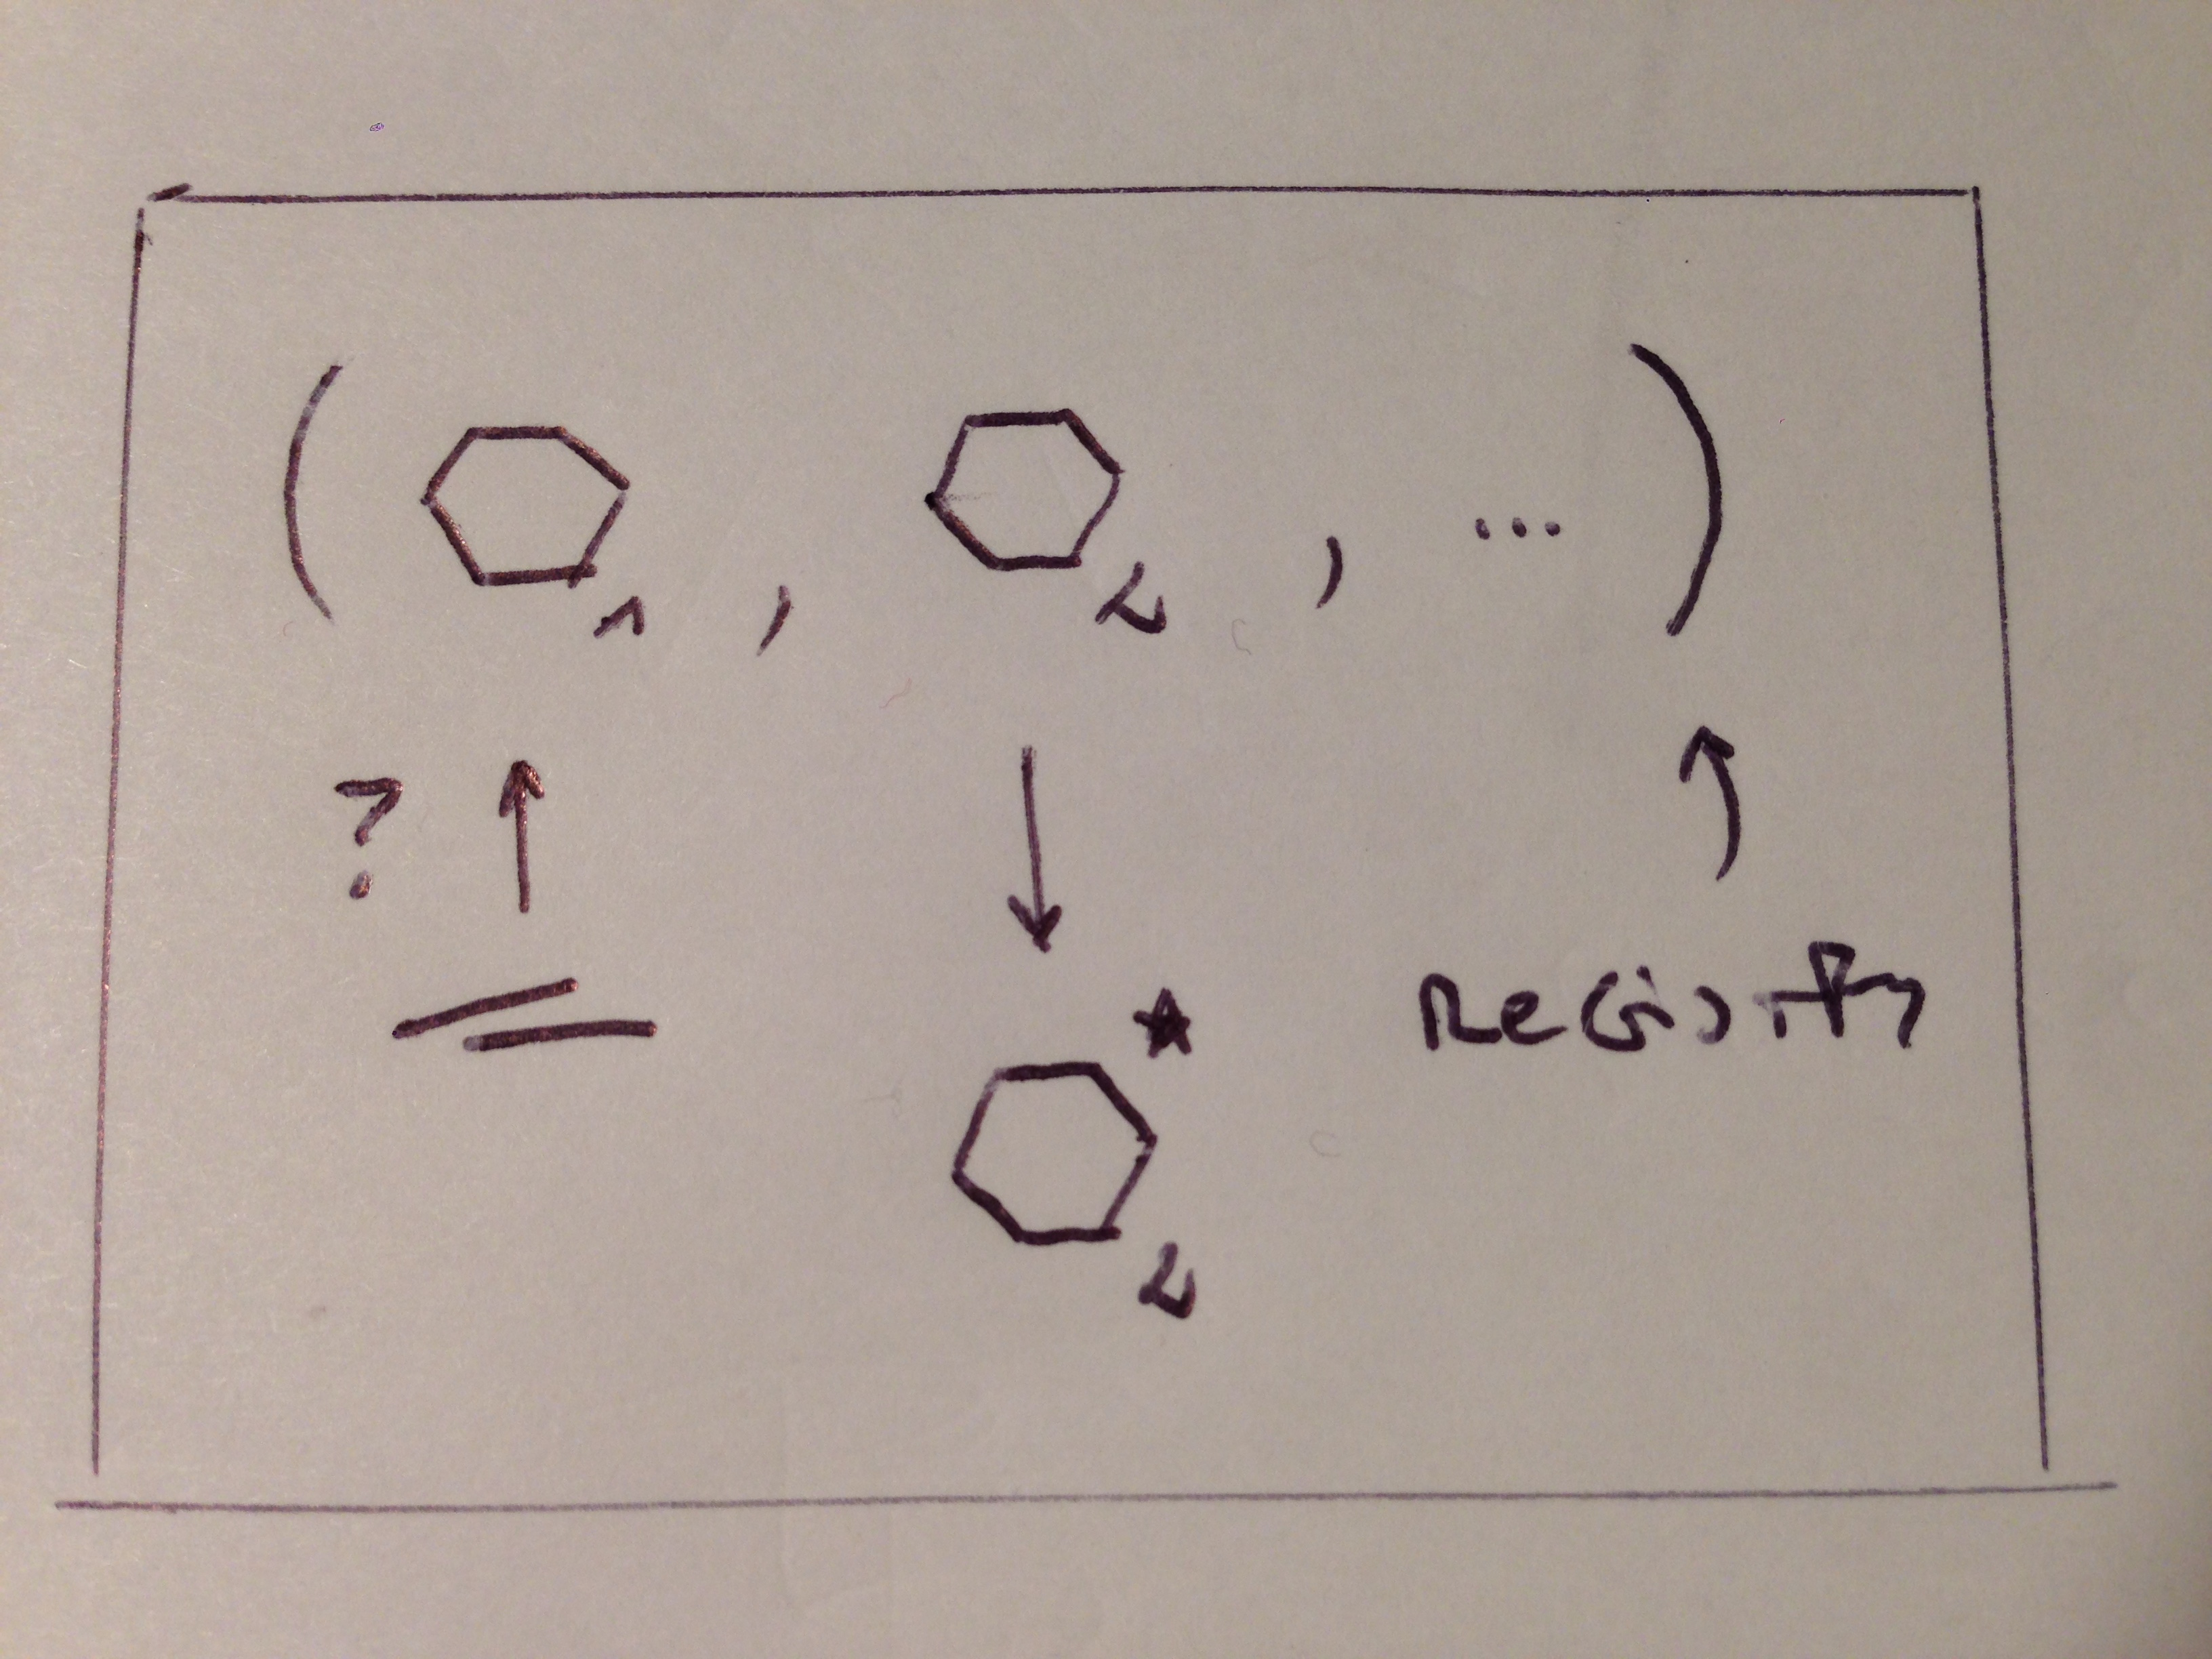 ( 1 , 2 , ... )
?
Registry
2